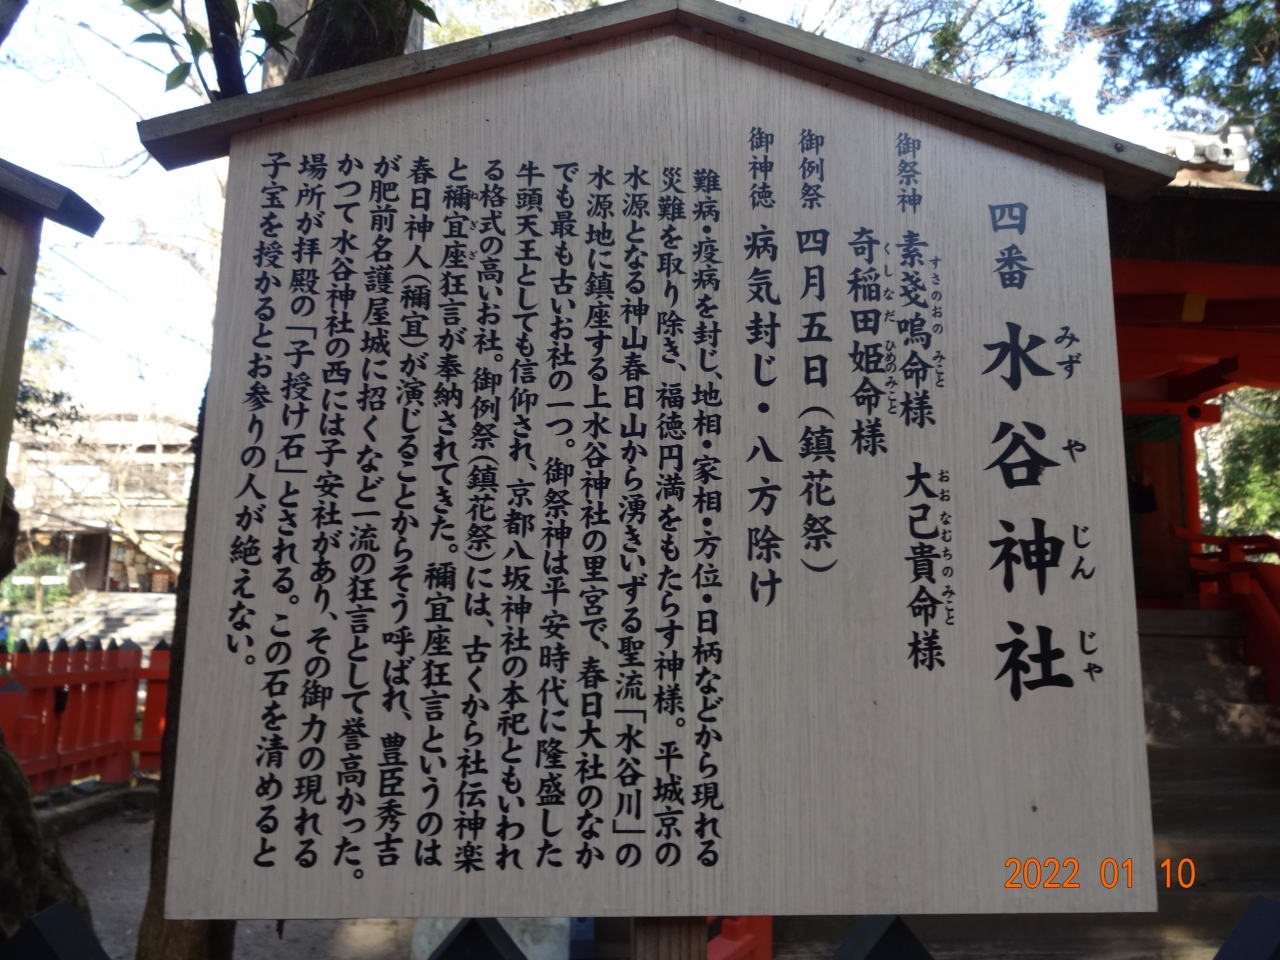 四番 水谷神社
みずやじんじゃ
御祭神 素戔嗚命様 大己貴命様
すさのおのみこと おおなむちのみこと
奇稲田姫命様
くしなだひめのみこと
御例祭 四月五日(鎮花祭)
御神徳 病気封じ・八方除け
難病・疫病を封じ、地相・家相・方位・日柄などから現れる
災難を取り除き、福徳円満をもたらす神様。平城京の
水源となる神山春日山から湧きいずる聖流「水谷川」の
水源地に鎮座する上水谷神社の里宮で、春日大社のなか
でも最も古いお社の一つ。御祭神は平安時代に隆盛した
牛頭天王としても信仰され、京都八坂神社の本祀ともいわれ
る格式の高いお社。御例祭(鎮花祭)には、古くから社伝神楽
と禰宜座狂言が奉納されてきた。禰宜座狂言というのは
ねぎざ
春日神人(禰宜)が演じることからそう呼ばれ、豊臣秀吉
が肥前名護屋城に招くなど一流の狂言として誉高かった。
かつて水谷神社の西には子安社があり、その御力の現れる
場所が拝殿の「子授け石」とされる。この石を清めると
子宝を授かるとお参りの人が絶えない。
2022 01 10